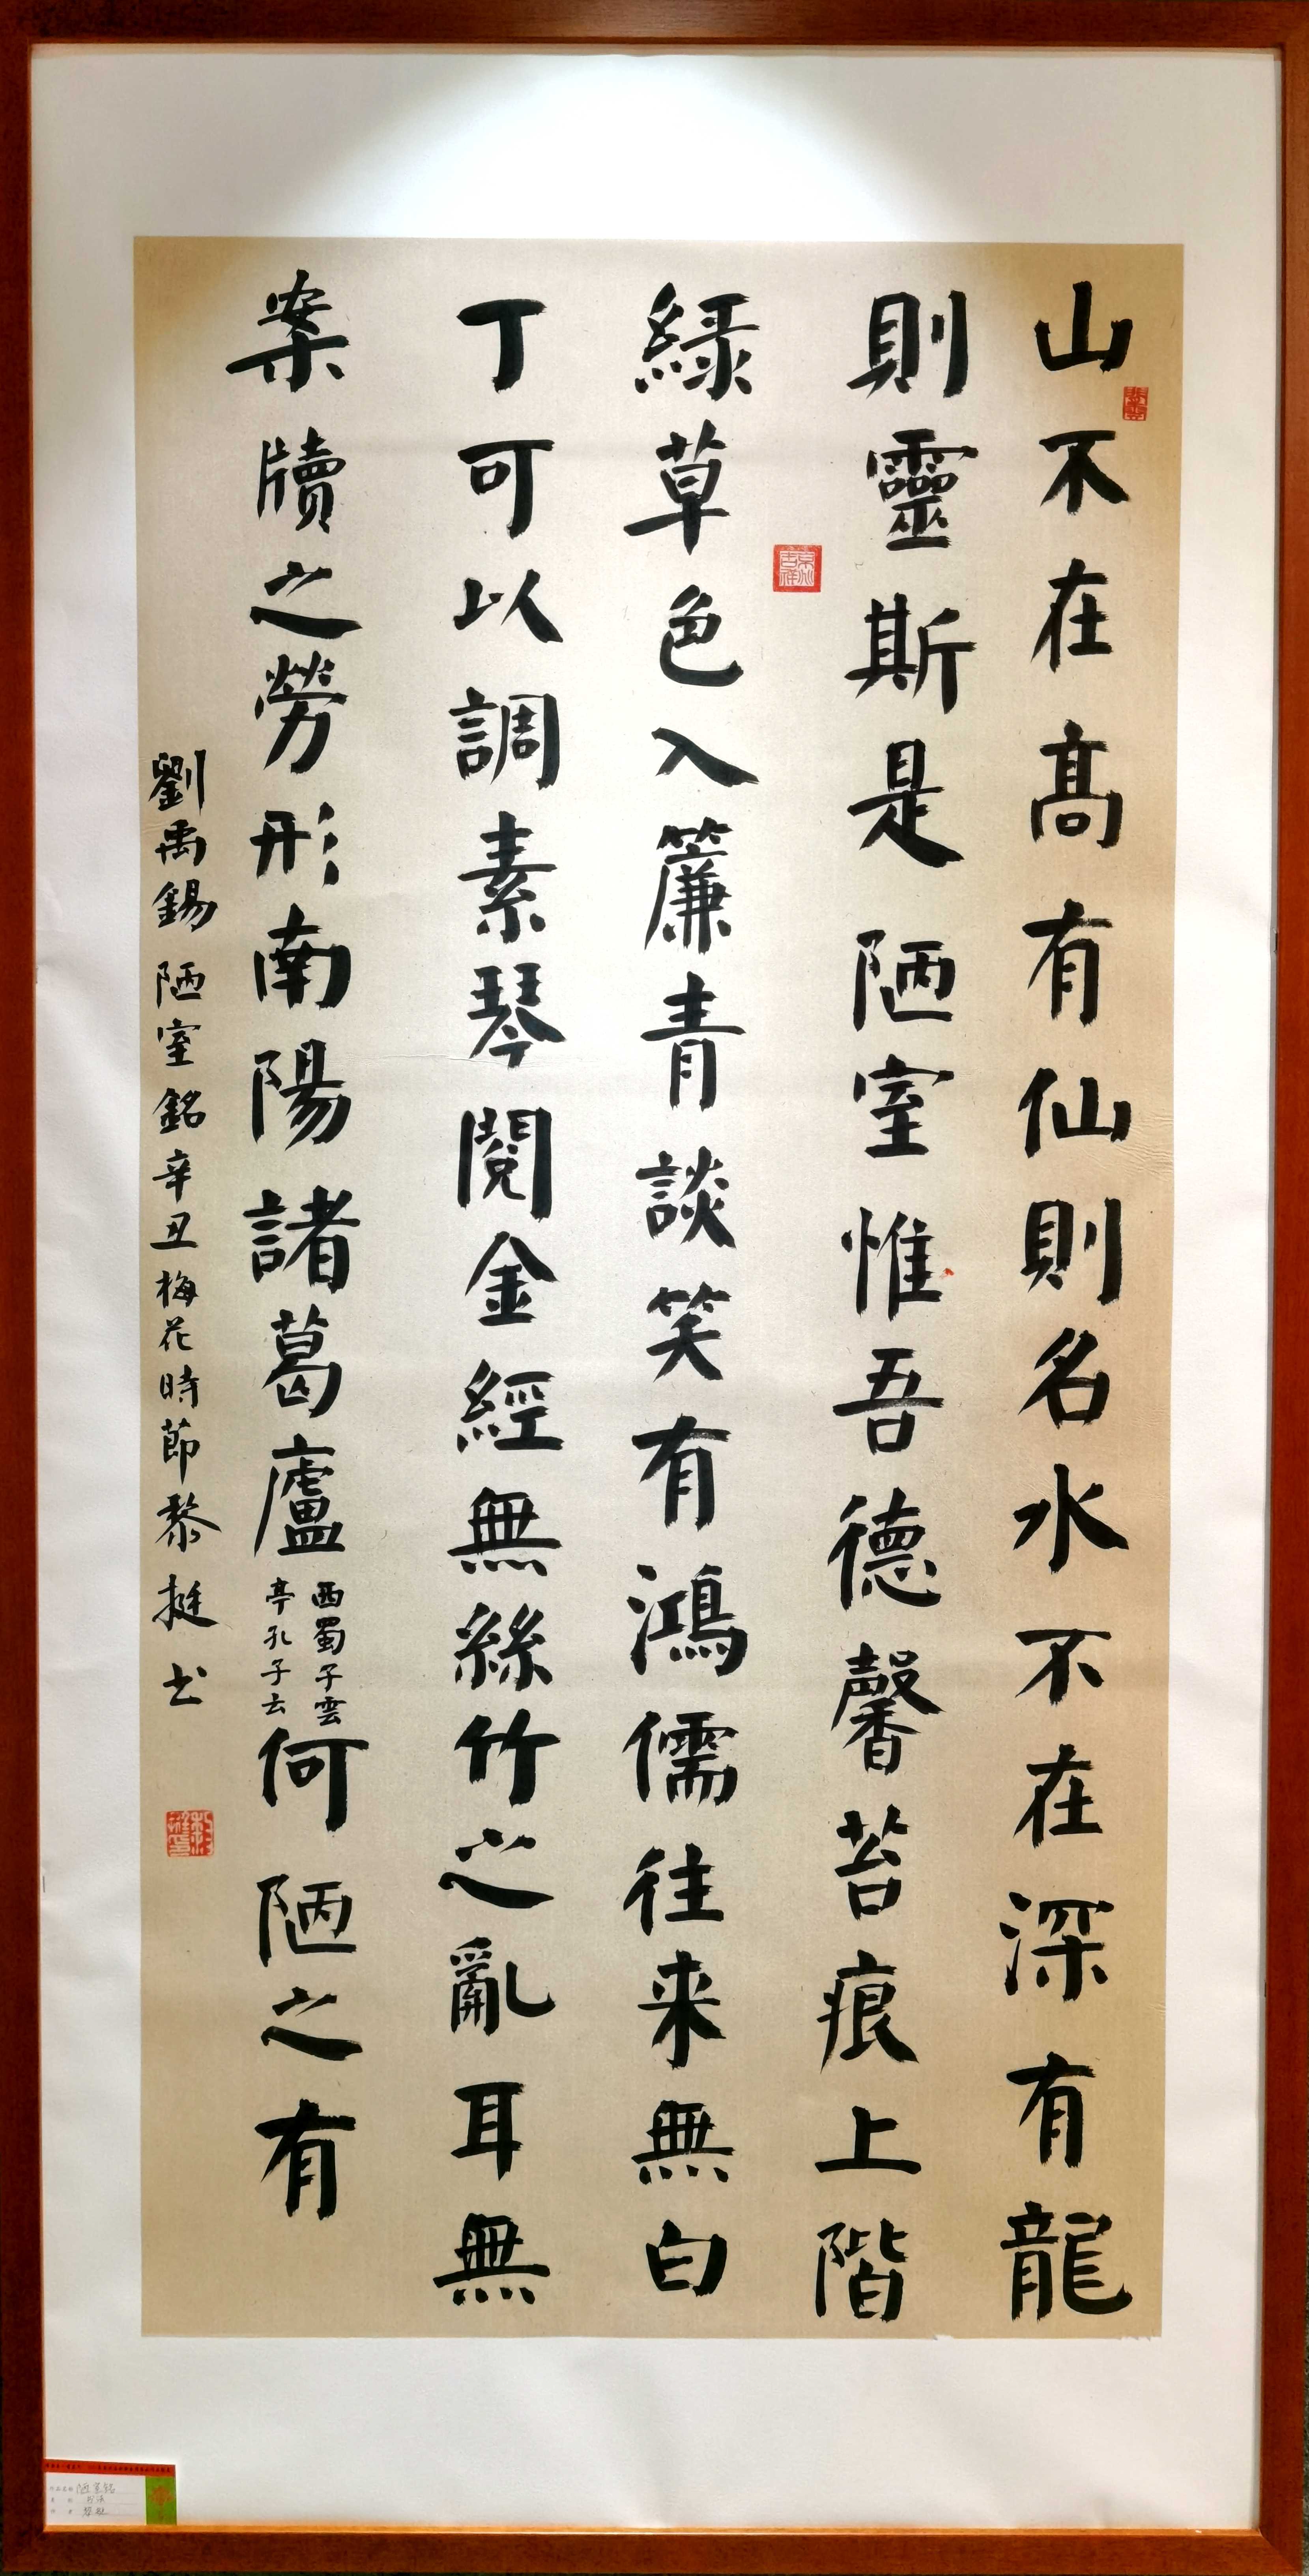 山不在高有仙則名水不在深有龍
則靈斯是陋室惟吾德馨苔痕上階
綠草色入簾青談笑有鴻儒往来無白
丁可以調素琴閱金經無絲竹之亂耳無
案牘之勞形南陽諸葛廬西蜀子雲亭孔子云何陋之有
劉禹錫陋室銘辛丑梅花時節黎挺书
陋室銘